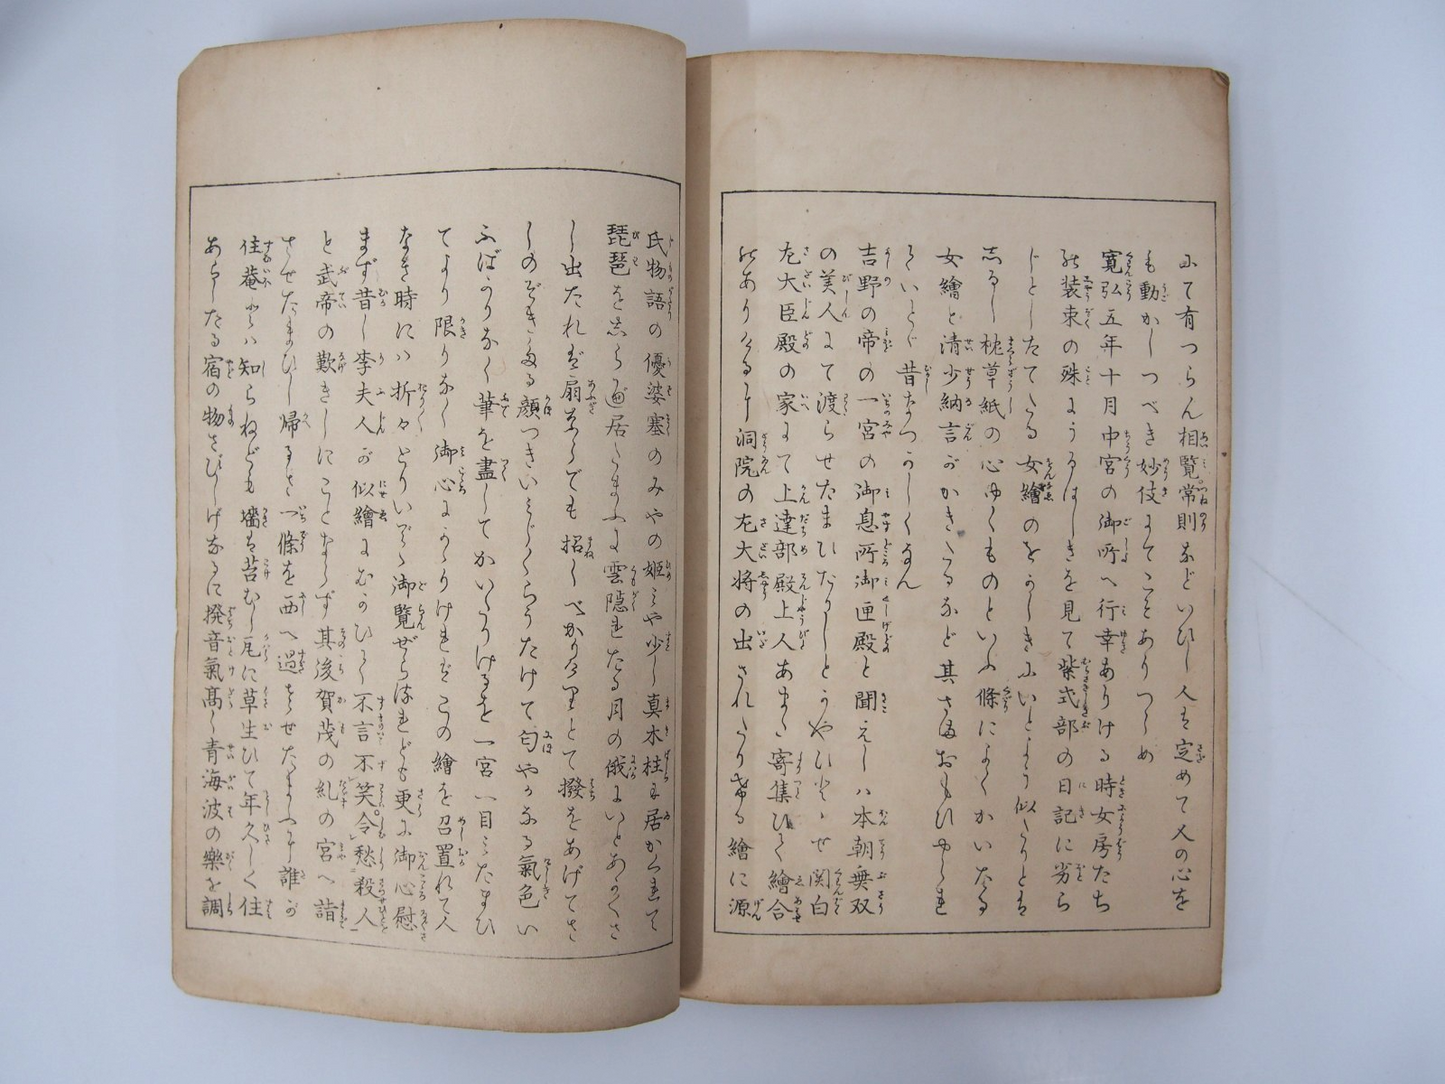 にて有つらん相覧常則などいひし人も定めて人の心を
も動かしつべき妙伎にてこそありつらめ
寛弘五年十月中宮の御所へ行幸ありける時女房たち
の装束の殊にうるはしきを見て紫式部の日記に劣ら
じとしたてたる女繪のをかしきにいとよう似たりとも
しるし枕草紙の心ゆくものといふ條によくかいたる
女繪と清少納言がかきたるなど其さまおもひやられ
ていとど昔なつかしくなん
吉野の帝の一宮の御息所御匣殿と聞えしは本朝無双
の美人にて渡らせたまひたりしとかやひととせ関白
左大臣殿の家にて上達部殿上人あまた寄集ひて繪合
のありけるに洞院の左大将の出されたりける繪に源
氏物語の優婆塞のみやの姫みや少し真木柱に居かくれて
琵琶をしらべ居たまふに雲隠れたる月の俄にいとあかくさ
し出たれば扇ならでも招くべかりけりとて撥をあげてさ
しのぞきたる顔つきいみじくらうたけて匂やかなる氣色い
ふばかりなく筆を盡してかいたりけるを一宮一目みたまひ
てより限りなく御心にかかりければこの繪を召置れて人
なき時には折々とりいでて御覧ぜらるれども更に御心慰
まず昔し李夫人が似繪にむかひて不言不笑令愁殺人
と武帝の歎きしにことならず其後賀茂の糺の宮へ詣
させたまひし帰るさ一條を西へ過させたまふに誰が
住菴とは知らねども墻に苔むし瓦に草生ひて年久しく住
あらしたる宿の物さびしげなるに撥音氣高く青海波の樂を調